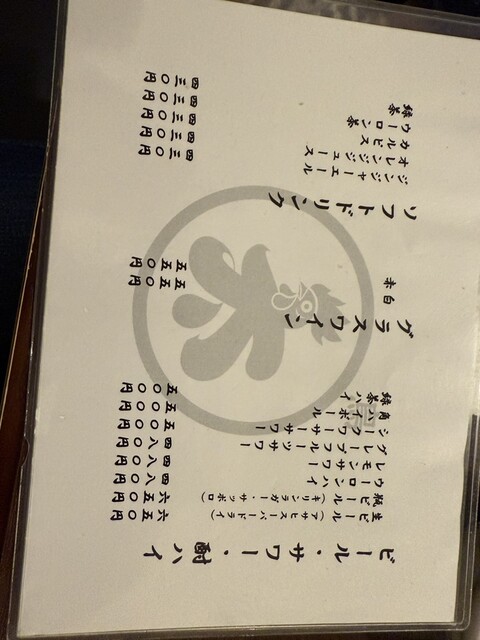 ビール・サワー・酎ハイ
生ビール（アサヒスーパードライ） 六五〇円
瓶ビール（キリンラガー・サッポロ） 六五〇円
ウーロンハイ 四八〇円
レモンサワー 四八〇円
グレープフルーツサワー 四八〇円
シークワーサーサワー 五〇〇円
角ハイボール 五〇〇円
緑茶ハイ 五〇〇円
グラスワイン
白 五五〇円
赤 五五〇円
ソフトドリンク
ジンジャーエール 四三〇円
オレンジジュース 四三〇円
カルピス 四三〇円
ウーロン茶 四三〇円
緑茶 四三〇円